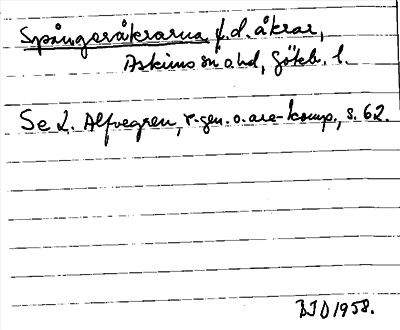 Spångeråkrarna f.d. åkrar,
Askims sn o. hd, Göteb. l.
Se L. Alfvegren, r-gen. o. are-komp., s. 62.
BJD 1958.